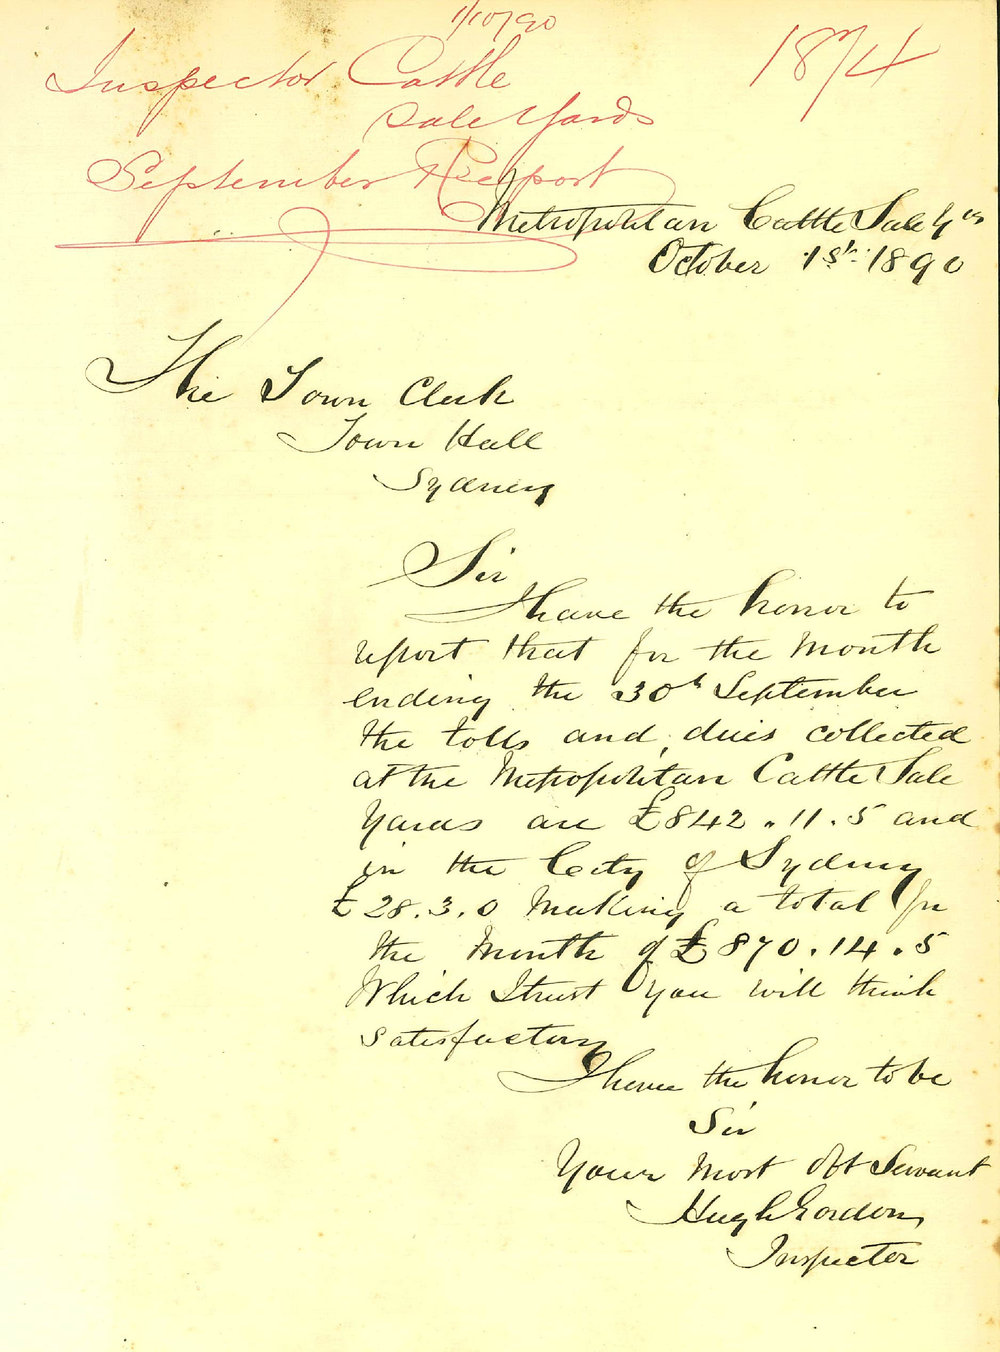 1/10/90
Inspector Cattle
Sale Yards
1874
September Report
Metropolitan Cattle Sale Yds
October 1st 1890
The Town Clerk
Town Hall
Sydney
Sir
I have the honor to
report that for the Month
ending the 30th September
the tolls and dues collected
at the Metropolitan Cattle Sale
Yards are £842.11.5 and
in the City of Sydney
£28.3.0 Making a total for
the Month of £870.14.5
Which I trust you will think
satisfactory
I have the honor to be
Sir
Your Most Obt Servant
Hugh Gordon
Inspector